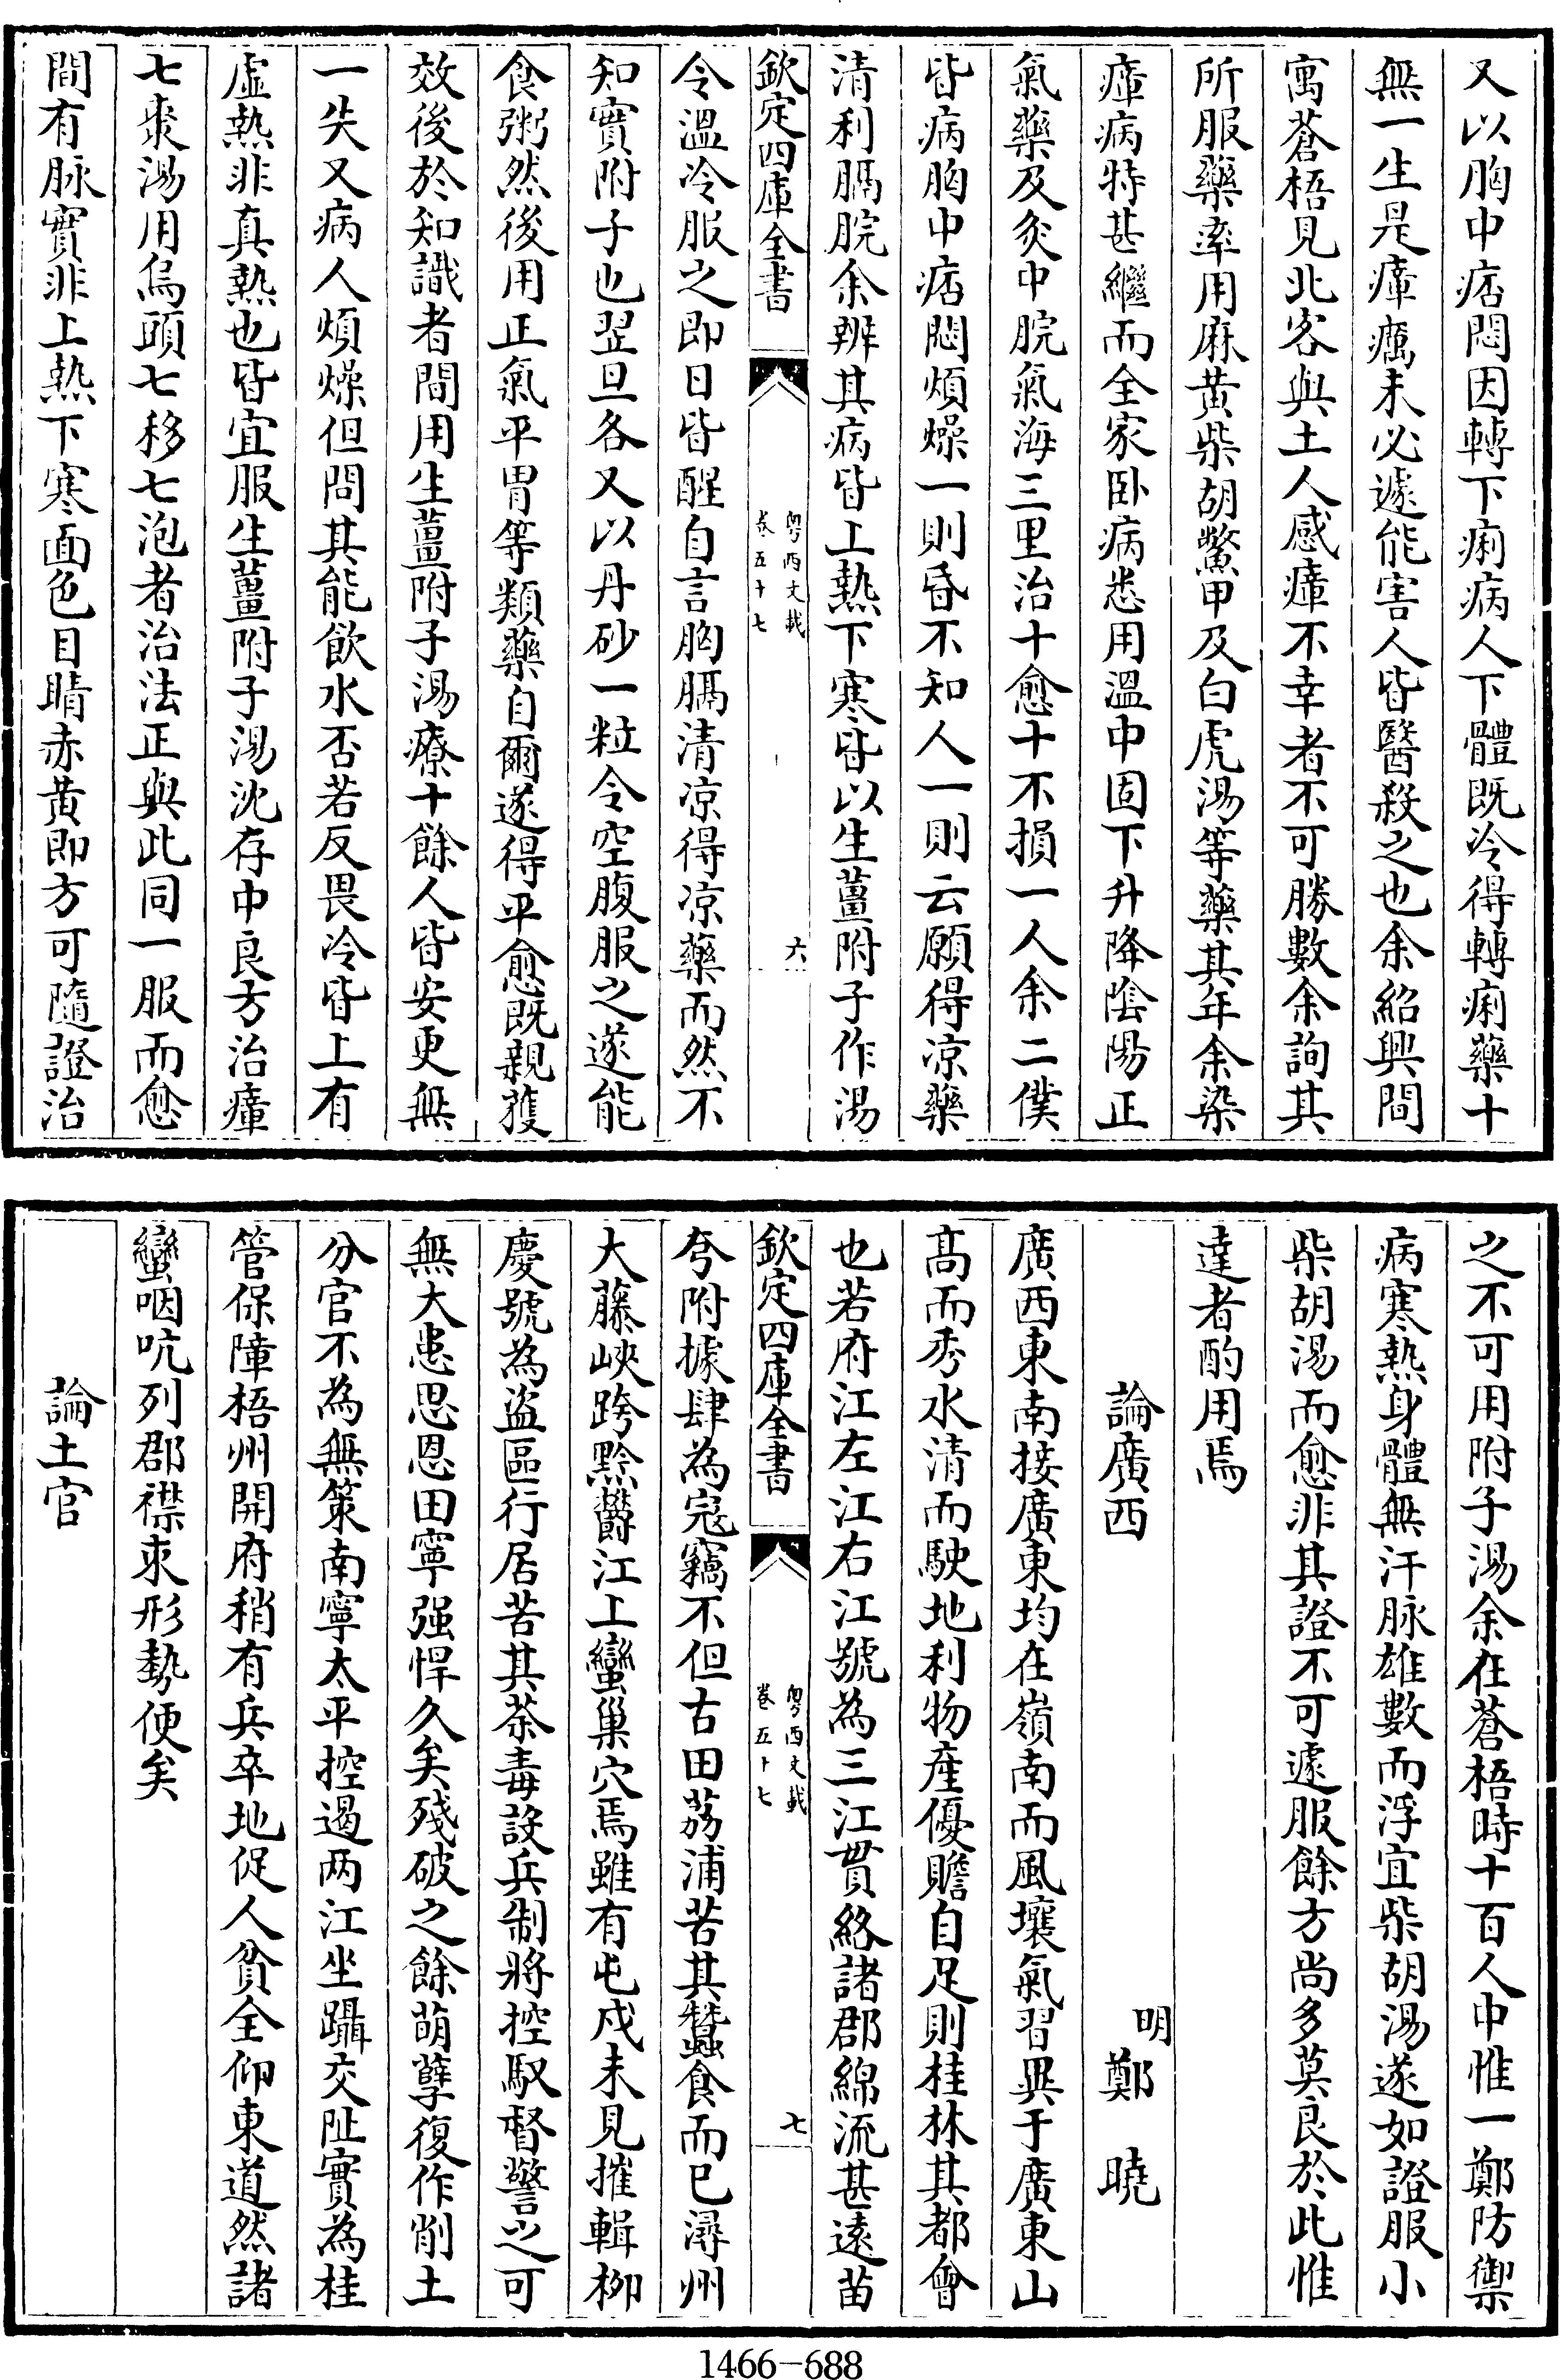 又以胸中痞悶因轉下痢病人下體既冷得轉痢藥十
無一生是瘴癘未必遽能害人皆醫殺之也余紹興間
寓蒼梧見北客與土人感瘴不幸者不可勝數余詢其
所服藥率用麻黄柴胡鱉甲及白虎湯等藥其年余染
瘴病特甚繼而全家卧病悉用溫中固下升降陰陽正
氣藥及灸中脘氣海三里治十愈十不損一人余二僕
皆病胸中痞悶煩燥一則昏不知人一則云願得凉藥
清利膈脘余辨其病皆上熱下寒皆以生薑附子作湯
欽定四庫全書
粤西文載
卷五十七
六
令溫冷服之即日皆醒自言胸膈清凉得凉藥而然不
知實附子也翌旦各又以丹砂一粒令空腹服之遂能
食粥然後用正氣平胃等類藥自爾遂得平愈既親獲
效後於知識者間用生薑附子湯療十餘人皆安更無
一失又病人煩燥但問其能飲水否若反畏冷皆上有
虛熱非真熱也皆宜服生薑附子湯沈存中良方治瘴
七棗湯用烏頭七移七泡者治法正與此同一服而愈
間有脉實非上熱下寒面色目睛赤黄即方可隨證治
之不可用附子湯余在蒼梧時十百人中惟一鄭防禦
病寒熱身體無汗脉雄數而浮宜柴胡湯遂如證服小
柴胡湯而愈非其證不可遽服餘方尚多莫良於此惟
達者酌用焉
論廣西
明鄭曉
廣西東南接廣東均在嶺南而風壤氣習異于廣東山
髙而秀水清而駛地利物産優贍自足則桂林其都會
也若府江左江右江號為三江貫絡諸郡綿流甚遠苗
欽定四庫全書
粤西文載
卷五十七
七
夸附據肆為宼竊不但古田荔浦苦其蠶食而已潯州
大藤峽跨黔鬱江上蠻巢穴焉雖有屯戍未見摧輯柳
慶號為盗區行居苦其荼毒設兵制將控馭督警之可
無大患思恩田寧强悍久矣殘破之餘萌孽復作削土
分官不為無策南寧太平控遏两江坐躡交阯實為桂
管保障梧州開府稍有兵卒地促人貧全仰東道然諸
蠻咽吭列郡襟束形勢便矣
論土官
1466-688